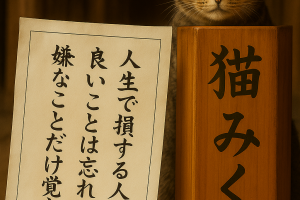 人生で損する人
良いことは忘れ
嫌なことだけ覚
猫みく